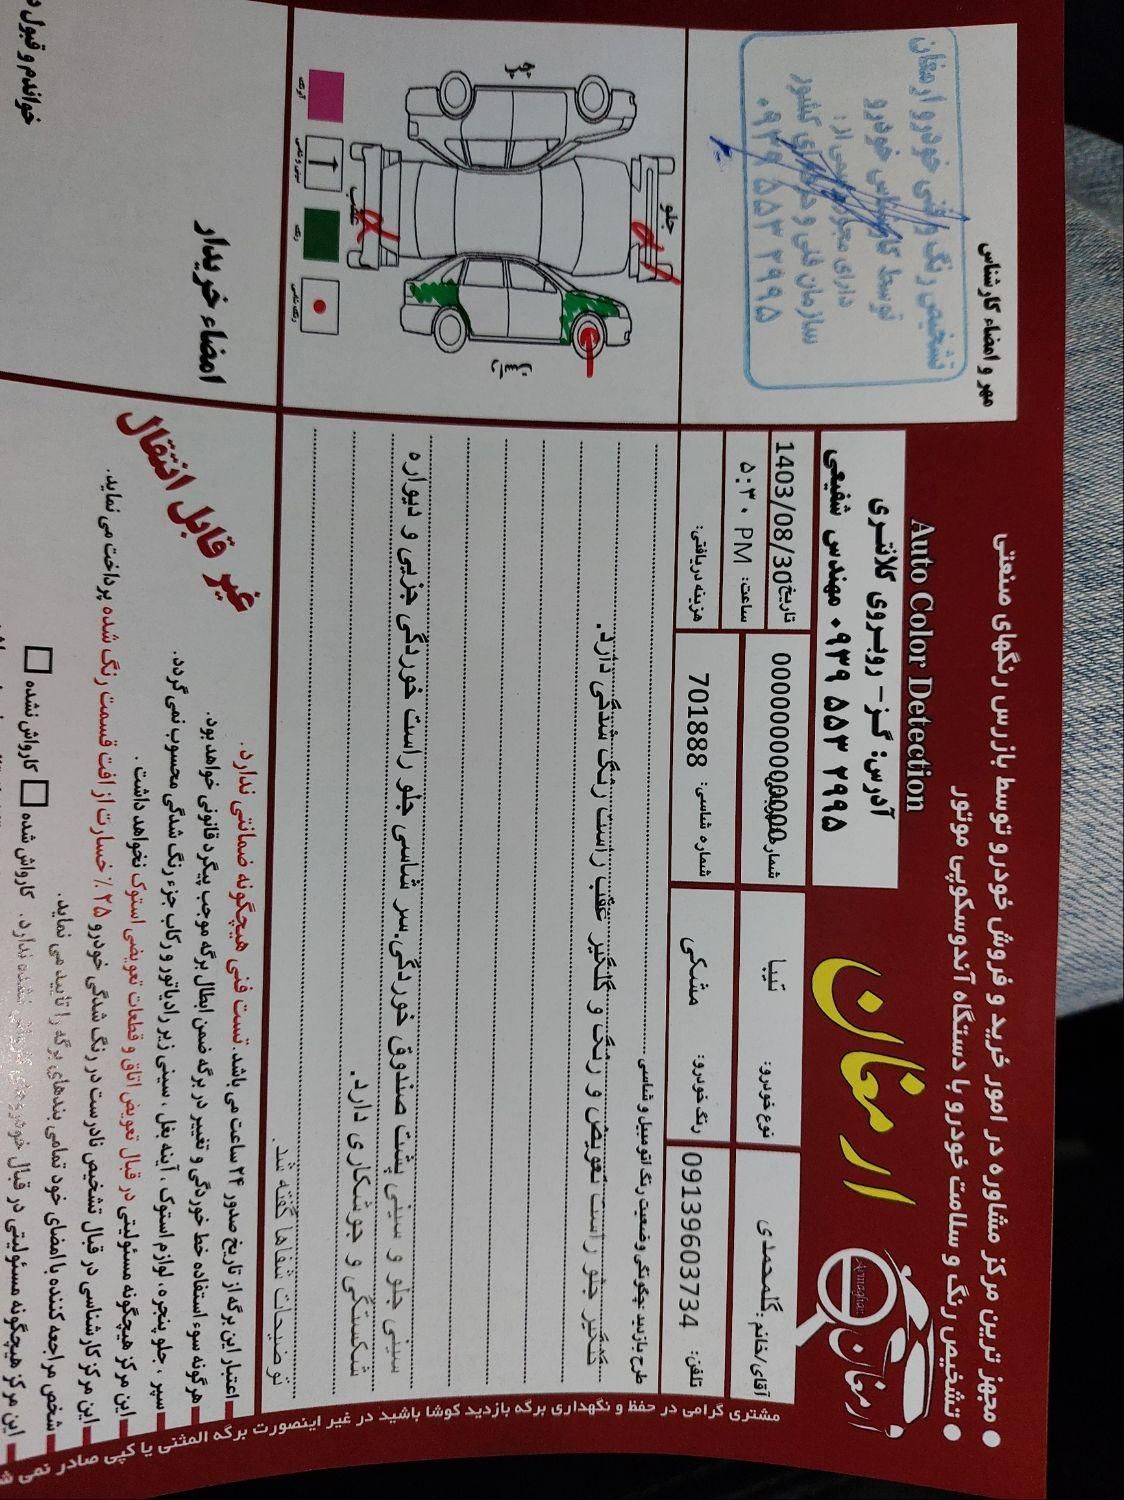 ● مجهز ترین مرکز مشاوره در امور خرید و فروش خودرو توسط بازرس رنگهای صنعتی
● تشخیص رنگ و سلامت خودرو با دستگاه آندوسکوپی موتور
Auto Color Detection
آدرس: گز - روبروی کلانتری
۰۹۳۹ ۵۵۳ ۲۹۹۵ مهندس شفیعی
ارمغان
ارمغان
Armaghan
مهر و امضاء کارشناس
تشخیص رنگ و فنی خودرو ارمغان
توسط کارشناس خودرو
دارای مجوز رسمی از:
سازمان فنی و حرفه‌ای کشور
۰۹۳۹ ۵۵۳ ۲۹۹۵
آقای/خانم: گلمحمدی
نوع خودرو: تیبا
تاریخ: 1403/08/30
تلفن: 09139603734
رنگ خودرو: مشکی
شماره شاسی: 701888
ساعت: ۵:۳۰ PM
هزینه دریافتی:
طرح بازدید چگونگی وضعیت رنگ اتومبیل و شاسی
گلگیر جلو راست تعویض و رنگ و گلگیر عقب راست رنگ شدگی دارد.
سینی جلو و سینی پشت صندوق خوردگی.سر شاسی جلو راست خوردگی جزیی و دیواره
شکستگی و جوشکاری دارد.
توضیحات شفاها گفته شد.
جلو
عقب
چپ
راست
رنگ
امضاء خریدار
خواندم و قبول
غیر قابل انتقال
اعتبار این برگه از تاریخ صدور ۲۴ ساعت می باشد. تست فنی هیچگونه ضمانتی ندارد.
هرگونه سوء استفاده خط خوردگی و تغییر در برگه ضمن ابطال برگه موجب پیگرد قانونی خواهد بود.
سپر ، جلو پنجره ، لوازم استوک ، آینه بغل ، سینی زیر رادیاتور و رکاب جزء رنگ شدگی محسوب نمی گردد.
این مرکز هیچگونه مسئولیتی در قبال تعویض اتاق و قطعات تعویضی استوک نخواهد داشت .
این مرکز کارشناسی در قبال تشخیص نادرست در رنگ شدگی خودرو ۲۵٪ خسارت از افت قسمت رنگ شده پرداخت می نماید.
شخص مراجعه کننده با امضای خود تمامی بندهای برگه را تایید می نماید.
این مرکز هیچگونه مسئولیتی در قبال خودروهای کارواش نشده ندارد. کارواش شده □ کارواش نشده □
مشتری گرامی در حفظ و نگهداری برگه بازدید کوشا باشید در غیر اینصورت برگه المثنی یا کپی صادر نمی